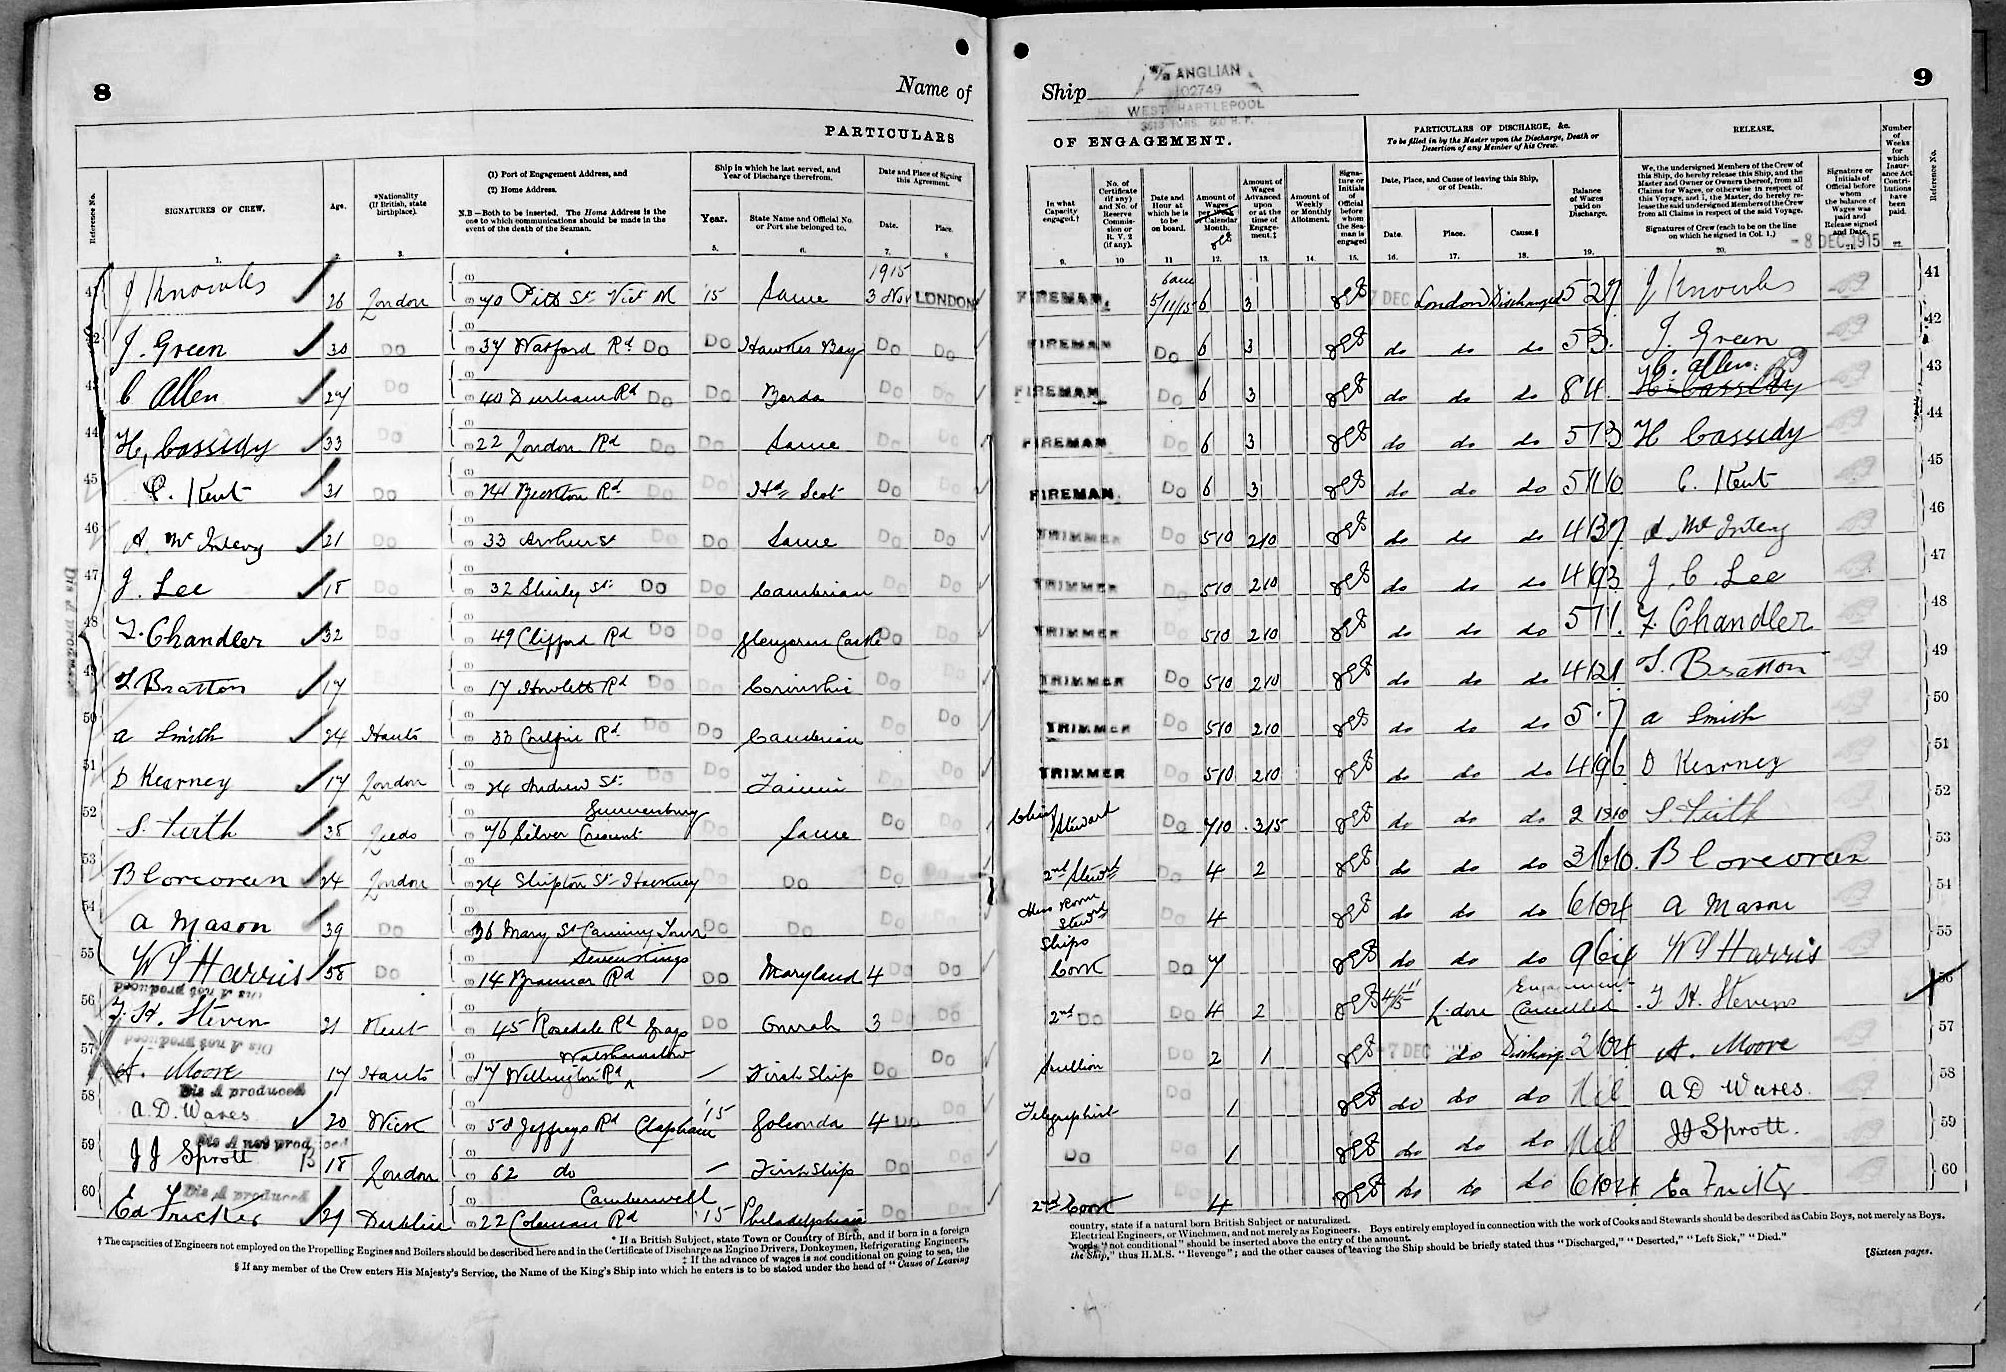 8
Name of
PARTICULARS
Reference No.
SIGNATURES OF CREW.
Age.
*Nationality (If British, state birthplace).
(1) Port of Engagement Address, and
(2) Home Address.
N.B—Both to be inserted. The Home Address is the one to which communications should be made in the event of the death of the Seaman.
Ship in which he last served, and Year of Discharge therefrom.
Year.
State Name and Official No. or Port she belonged to.
Date and Place of Signing this Agreement.
Date.
Place.
1. 2. 3. 4 5. 6. 7. 8
41 J Knowles 26 London 70 Pitt St Vict 15 Same 1915 3 Nov LONDON
42 J. Green 30 Do 37 Watford Rd Do Do Hawkes Bay Do Do
43 C Allen 27 Do 40 Durham Rd Do Do Do Do
44 H, Cassidy 33 Do 22 London Rd Do Do Same Do Do
45 C. Kent 31 Do Beckton Rd Do Do Scot Do Do
46 A. 21 Do 33 Arthur St Do Do Same Do Do
47 J. Lee 18 Do 32 Shirley St Do Do Cambrian Do Do
48 F. Chandler 32 Do 49 Clifford Rd Do Do Castle Do Do
49 Bratton 17 17 Howletts Rd Do Do Corinthic Do Do
50 A Smith 24 Hants 33 Rd Do Do Cambrian Do Do
51 D Kearney 17 London 24 Andrew St Do Do Do Do
52 S. Firth 38 Leeds 76 Silver Crescent Gunnersbury Do Same Do Do
53 B Corcoran 24 London 24 Shipton St Hackney Do Do Do Do
54 A Mason 39 Do 36 Mary St Canning Town Do Do Do Do
55 W Harris 58 Do 14 Braemar Rd Seven Kings Do Maryland 4 Do Do
Dis A not produced
56 F. H. Steven 21 Kent 45 Rosedale Rd Grays Do 3 Do Do
Dis A not produced
57 A. Moore 17 Hants 17 Wellington Rd Walthamstow — First Ship Do Do
Dis A produced
58 A. D. Wares 20 Wick 58 Jeffreys Rd Clapham '15 Golconda 4 Do Do
Dis A not produced
59 J J Sprott 18 London 62 do — First Ship Do Do
Dis A produced
60 Ed Fricker 29 Dublin 22 Coleman Rd Camberwell '15 Philadelphian Do Do
Dis A produced
* If a British Subject, state Town or Country of Birth, and if born in a foreign
† The capacities of Engineers not employed on the Propelling Engines and Boilers should be described here and in the Certificate of Discharge as Engine Drivers, Donkeymen, Refrigerating Engineers,
‡ If the advance of wages is not conditional on going to sea, the
§ If any member of the Crew enters His Majesty's Service, the Name of the King's Ship into which he enters is to be stated under the head of "Cause of Leaving
Ship
ANGLIAN
102749
WEST HARTLEPOOL
9
OF ENGAGEMENT.
PARTICULARS OF DISCHARGE, &c.
To be filled in by the Master upon the Discharge, Death or Desertion of any Member of his Crew.
RELEASE.
In what Capacity engaged.†
No. of Certificate (if any) and No. of Reserve Commission or R. V. 2 (if any).
Date and Hour at which he is to be on board.
Amount of Wages per Week or Calendar Month.
Amount of Wages Advanced upon or at the time of Engagement.‡
Amount of Weekly or Monthly Allotment.
Signature or Initials of Official before whom the Seaman is engaged
Date, Place, and Cause of leaving this Ship, or of Death.
Date. Place. Cause.§
Balance of Wages paid on Discharge.
We, the undersigned Members of the Crew of this Ship, do hereby release this Ship, and the Master and Owner or Owners thereof, from all Claims for Wages, or otherwise in respect of this Voyage, and I, the Master, do hereby release the undersigned Members of the Crew from all Claims in respect of the said Voyage.
Signatures of Crew (each to be on the line on which he signed in Col. 1.)
Signature or Initials of Official before whom the balance of Wages was paid and Release signed and Date.
- 8 DEC. 1915
Number of Weeks for which Insurance Act Contributions have been paid.
Reference No.
9. 10 11 12. 13. 14. 15. 16. 17. 18. 19. 20. 21. 22.
FIREMAN. 5/11/15 6 3 7 DEC London Discharged 5 2 9 J Knowles 41
FIREMAN Do 6 3 do do do 5 3 J. Green 42
FIREMAN Do 6 3 do do do 8 4 C. Allen H. Cassidy 43
FIREMAN Do 6 3 do do do 5 13 H Cassidy 44
FIREMAN. Do 6 3 do do do 5 11 10 C. Kent 45
TRIMMER Do 5 10 2 10 do do do 4 13 7 46
TRIMMER Do 5 10 2 10 do do do 4 9 3 J. C. Lee 47
TRIMMER Do 5 10 2 10 do do do 5 7 1 F. Chandler 48
TRIMMER Do 5 10 2 10 do do do 4 12 1 Bratton 49
TRIMMER Do 5 10 2 10 do do do 5 . 7 A Smith 50
TRIMMER Do 5 10 2 10 do do do 4 9 6 D Kearney 51
Chief Steward Do 7 10 3 15 do do do 2 19 10 S. Firth 52
2nd Stewd Do 4 2 do do do 3 16 10 B Corcoran 53
Mess Room Stewd Do 4 do do do 6 10 4 A Mason 54
Ships Cook Do 7 do do do 9 6 4 W Harris 55
2nd Do Do 4 2 London Engagement Cancelled F. H. Stevens 56
Scullion Do 2 1 -7 DEC do Discharged 2 10 4 A. Moore 57
Telegraphist Do 1 do do do Nil A D Wares. 58
Do 1 do do do Nil JJ Sprott. 59
2nd Cook Do 4 do do do 6 10 4 Ed Fricker 60
country, state if a natural born British Subject or naturalized.
Electrical Engineers, or Winchmen, and not merely as Engineers. Boys entirely employed in connection with the work of Cooks and Stewards should be described as Cabin Boys, not merely as Boys.
words "not conditional" should be inserted above the entry of the amount.
the Ship," thus H.M.S. "Revenge"; and the other causes of leaving the Ship should be briefly stated thus "Discharged," "Deserted," "Left Sick," "Died."
[Sixteen pages.